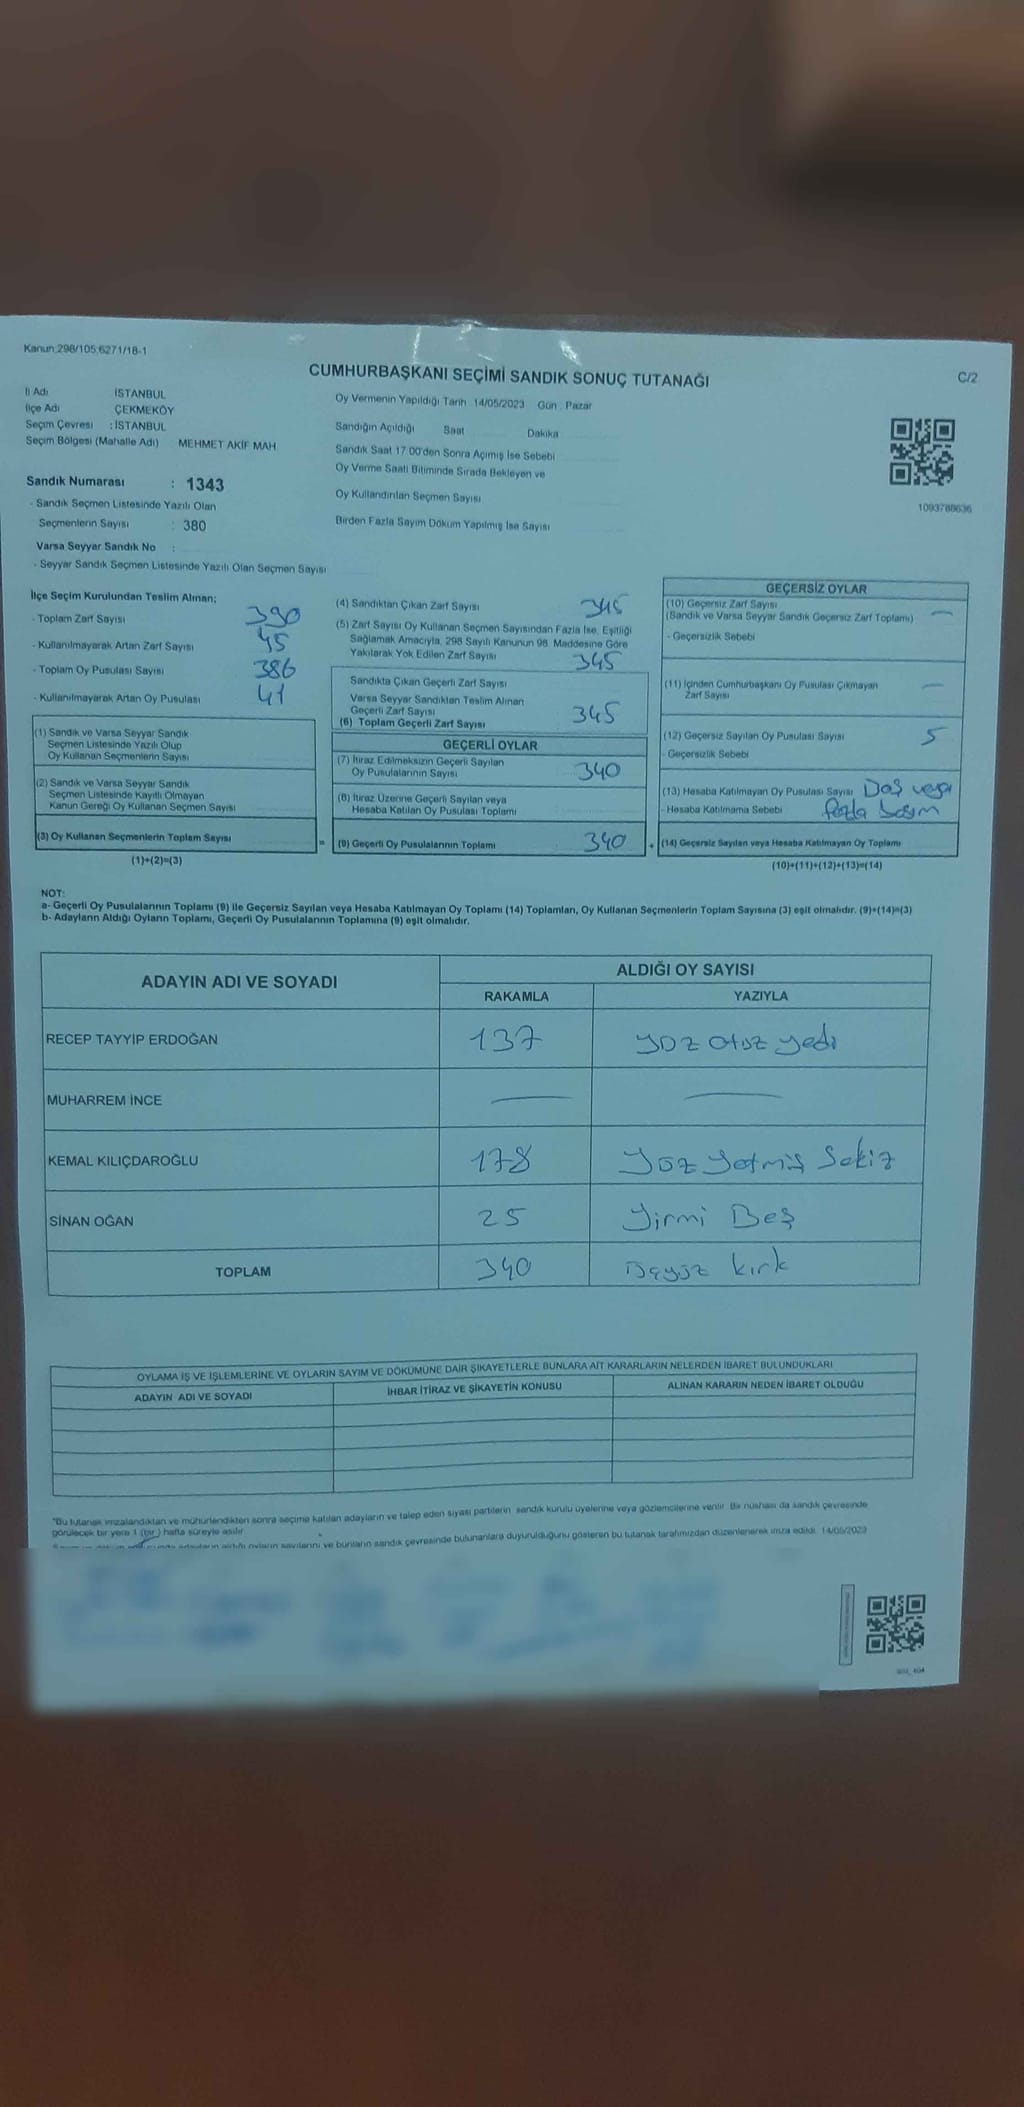 Kanun:298/105;6271/18-1
CUMHURBAŞKANI SEÇİMİ SANDIK SONUÇ TUTANAĞI
C/2
İl Adı İSTANBUL
İlçe Adı ÇEKMEKÖY
Seçim Çevresi : İSTANBUL
Seçim Bölgesi (Mahalle Adı) MEHMET AKİF MAH.
Sandık Numarası : 1343
- Sandık Seçmen Listesinde Yazılı Olan
Seçmenlerin Sayısı : 380
Varsa Seyyar Sandık No :
- Seyyar Sandık Seçmen Listesinde Yazılı Olan Seçmen Sayısı
Oy Vermenin Yapıldığı Tarih : 14/05/2023 Gün : Pazar
Sandığın Açıldığı Saat Dakika
Sandık Saat 17.00'den Sonra Açımış İse Sebebi
Oy Verme Saati Bitiminde Sırada Bekleyen ve
Oy Kullandırılan Seçmen Sayısı
Birden Fazla Sayım Döküm Yapılmış İse Sayısı
1093788636
İlçe Seçim Kurulundan Teslim Alınan;
- Toplam Zarf Sayısı 390
- Kullanılmayarak Artan Zarf Sayısı 45
- Toplam Oy Pusulası Sayısı 386
- Kullanılmayarak Artan Oy Pusulası 41
(1) Sandık ve Varsa Seyyar Sandık
Seçmen Listesinde Yazılı Olup
Oy Kullanan Seçmenlerin Sayısı
(2) Sandık ve Varsa Seyyar Sandık
Seçmen Listesinde Kayıtlı Olmayan
Kanun Gereği Oy Kullanan Seçmen Sayısı
(3) Oy Kullanan Seçmenlerin Toplam Sayısı =
(1)+(2)=(3)
(4) Sandıktan Çıkan Zarf Sayısı 345
(5) Zarf Sayısı Oy Kullanan Seçmen Sayısından Fazla İse, Eşitliği
Sağlamak Amacıyla, 298 Sayılı Kanunun 98. Maddesine Göre
Yakılarak Yok Edilen Zarf Sayısı 345
Sandıkta Çıkan Geçerli Zarf Sayısı
Varsa Seyyar Sandıktan Teslim Alınan
Geçerli Zarf Sayısı
(6) Toplam Geçerli Zarf Sayısı 345
GEÇERLİ OYLAR
(7) İtiraz Edilmeksizin Geçerli Sayılan
Oy Pusulalarının Sayısı 340
(8) İtiraz Üzerine Geçerli Sayılan veya
Hesaba Katılan Oy Pusulası Toplamı
(9) Geçerli Oy Pusulalarının Toplamı 340 +
GEÇERSİZ OYLAR
(10) Geçersiz Zarf Sayısı
(Sandık ve Varsa Seyyar Sandık Geçersiz Zarf Toplamı) —
- Geçersizlik Sebebi
(11) İçinden Cumhurbaşkanı Oy Pusulası Çıkmayan
Zarf Sayısı —
(12) Geçersiz Sayılan Oy Pusulası Sayısı 5
- Geçersizlik Sebebi
(13) Hesaba Katılmayan Oy Pusulası Sayısı Boş veya
- Hesaba Katılmama Sebebi fazla basım
(14) Geçersiz Sayılan veya Hesaba Katılmayan Oy Toplamı
(10)+(11)+(12)+(13)=(14)
NOT:
a- Geçerli Oy Pusulalarının Toplamı (9) ile Geçersiz Sayılan veya Hesaba Katılmayan Oy Toplamı (14) Toplamları, Oy Kullanan Seçmenlerin Toplam Sayısına (3) eşit olmalıdır. (9)+(14)=(3)
b- Adayların Aldığı Oyların Toplamı, Geçerli Oy Pusulalarının Toplamına (9) eşit olmalıdır.
ADAYIN ADI VE SOYADI ALDIĞI OY SAYISI
RAKAMLA YAZIYLA
RECEP TAYYİP ERDOĞAN 137 yüz otuz yedi
MUHARREM İNCE — —
KEMAL KILIÇDAROĞLU 178 yüz yetmiş sekiz
SİNAN OĞAN 25 Yirmi Beş
TOPLAM 340 kırk
OYLAMA İŞ VE İŞLEMLERİNE VE OYLARIN SAYIM VE DÖKÜMÜNE DAİR ŞİKAYETLERLE BUNLARA AİT KARARLARIN NELERDEN İBARET BULUNDUKLARI
ADAYIN ADI VE SOYADI İHBAR İTİRAZ VE ŞİKAYETİN KONUSU ALINAN KARARIN NEDEN İBARET OLDUĞU
"Bu tutanak imzalandıktan ve mühürlendikten sonra seçime katılan adayların ve talep eden siyasi partilerin sandık kurulu üyelerine veya gözlemcilerine verilir. Bir nüshası da sandık çevresinde
görülecek bir yere 1 (bir) hafta süreyle asılır.
aldığı oyların sayılarını ve bunların sandık çevresinde bulunanlara duyurulduğunu gösteren bu tutanak tarafımızdan düzenlenerek imza edildi. 14/05/2023